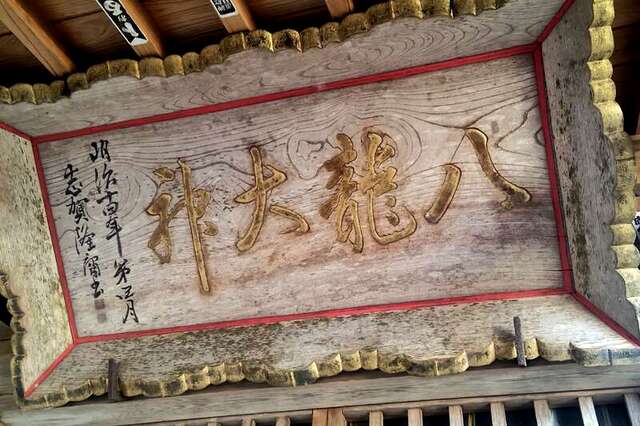 八龍大神
明治十四年第四月
志賀隆書